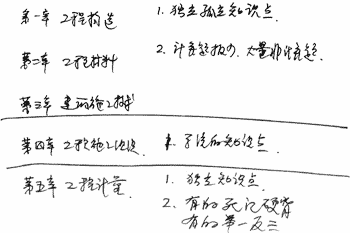 第一章 工程构造 1. 独立孤立知识点.
第二章 工程材料 2. 计算题极少. 大量非计算题.
第三章 建筑施工技术
第四章 工程施工 1. 系统的知识点.
第五章 工程计量 1. 独立知识点.
2. 有的死记硬背
有的举一反三